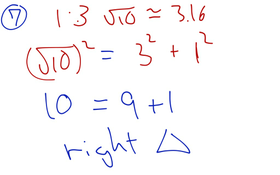 ⑦ 1:3 √10 ≃ 3.16
(√10)² = 3² + 1²
10 = 9 + 1
right △